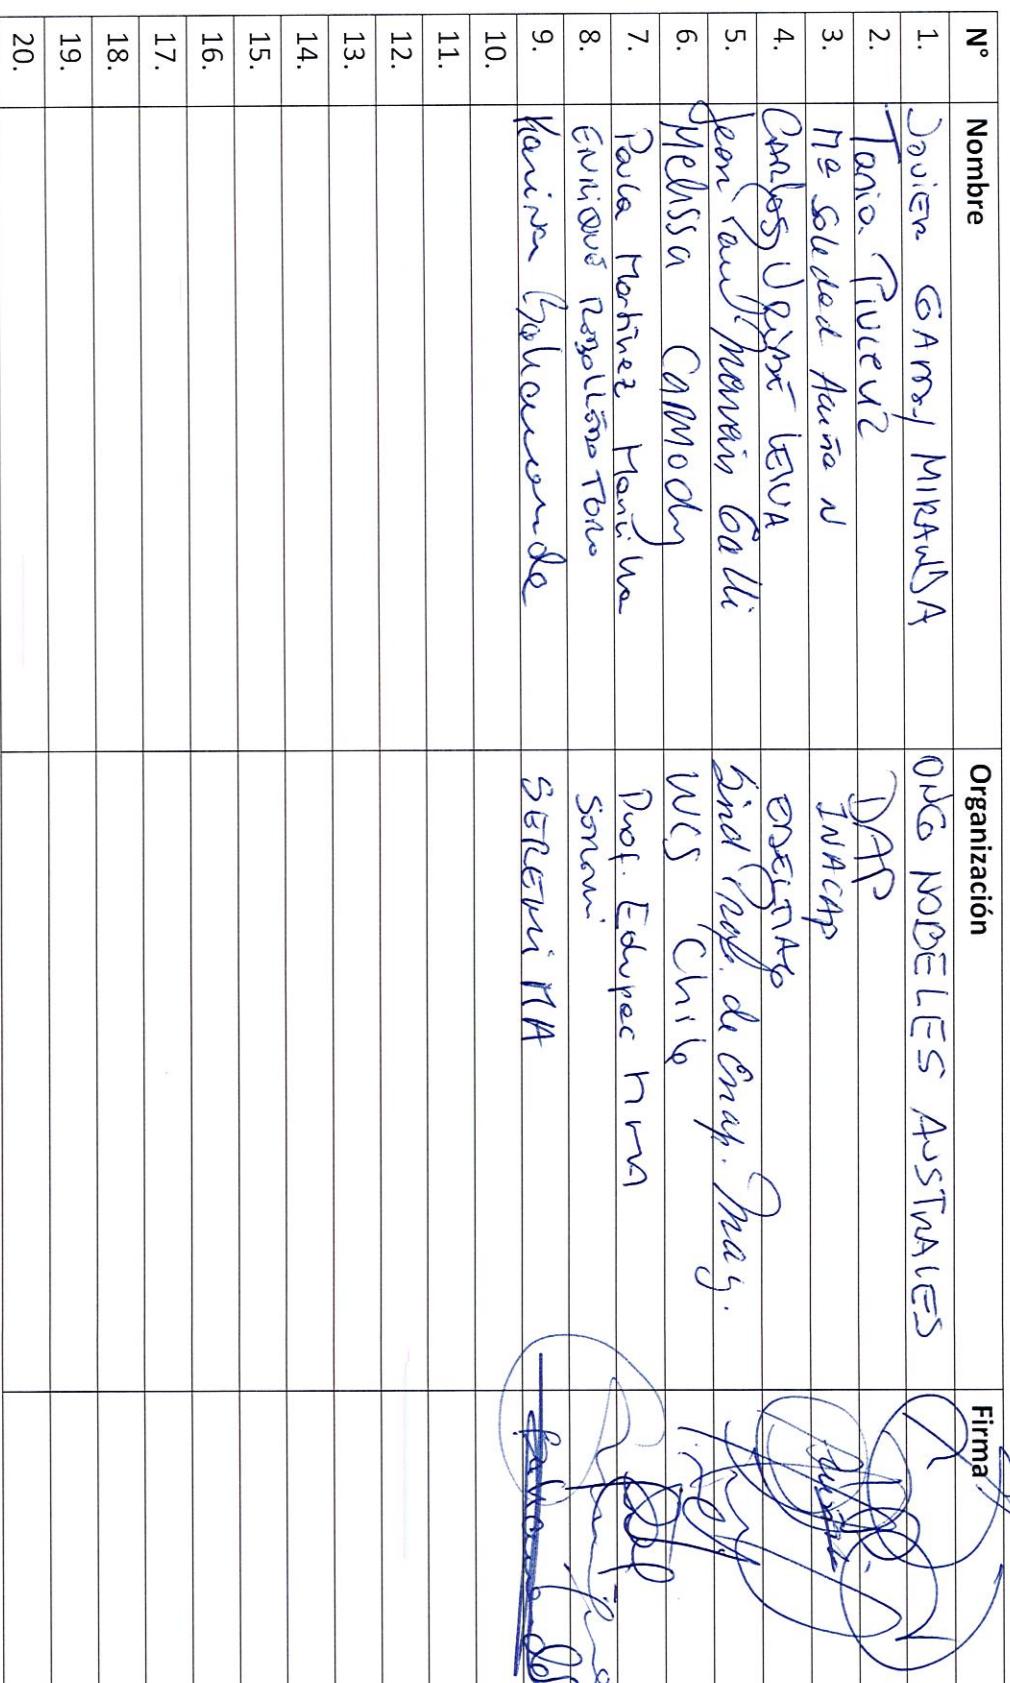 N° Nombre Organización Firma
1. Javier Garay Miranda ONG NOBELES AUSTRALES
2. Tania Pivcevic DAP
3. Mª Soledad Acuña N INACAP
4. Carlos Uribe Leiva EDELMAG
5. Jean Paul Galli Sind Prof. de Enap. Mag.
6. Melissa Carmody WCS Chile
7. Paula Martínez Prof. Edupac
8. Enrique Toro
9. Karina Bahamonde SEREMI MA
10.
11.
12.
13.
14.
15.
16.
17.
18.
19.
20.